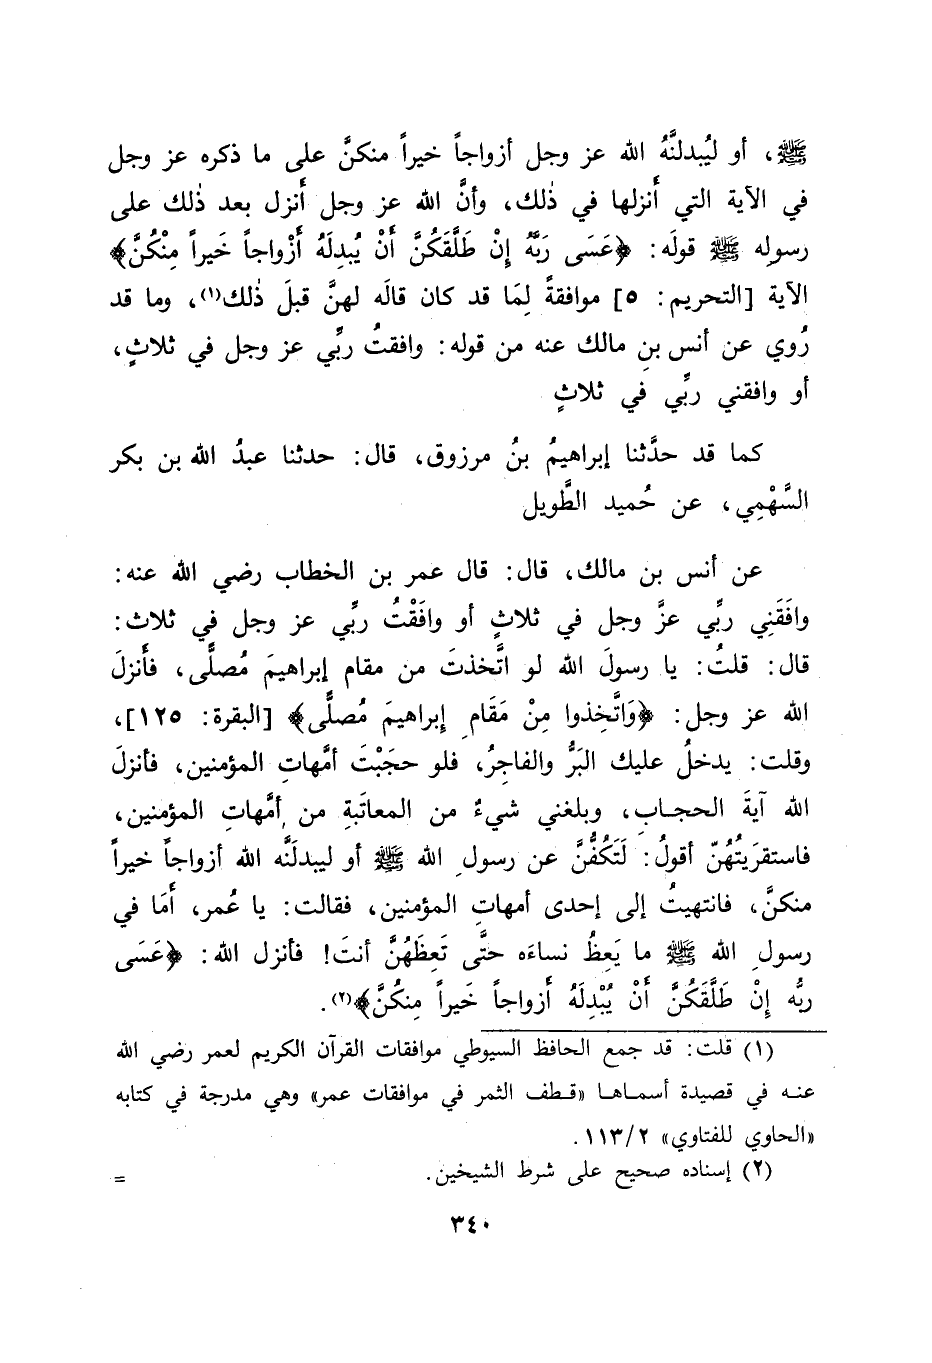 ﷺ، أو ليُبدلنَّهُ الله عز وجل أزواجاً خيراً منكنَّ على ما ذكره عز وجل
في الآية التي أَنزلها في ذٰلك، وأنَّ الله عز وجل أَنزل بعد ذٰلك على
رسولِه ﷺ قولَه: ﴿عَسَى رَبَّهُ إِنْ طَلَّقَكُنَّ أَنْ يُبدِلَهُ أَزْواجاً خَيراً مِنْكُنَّ﴾
الآية [التحريم: ٥] موافقةً لِمَا قد كان قالَه لهنَّ قبلَ ذٰلك(١)، وما قد
رُوي عن أنس بنِ مالك عنه من قوله: وافقتُ ربِّي عز وجل في ثلاثٍ،
أو وافقني ربِّي في ثلاثٍ
كما قد حدَّثنا إبراهيمُ بنُ مرزوق، قال: حدثنا عبدُ الله بن بكر
السَّهْمِي، عن حُميد الطَّويل
عن أنس بن مالك، قال: قال عمر بن الخطاب رضي الله عنه:
وافَقَنِي ربِّي عزَّ وجل في ثلاثٍ أو وافَقْتُ ربِّي عز وجل في ثلاث:
قال: قلتُ: يا رسولَ الله لو اتَّخذتَ من مقام إبراهيمَ مُصلَّى، فأَنزلَ
الله عز وجل: ﴿وَاتَّخِذوا مِنْ مَقَامِ إبراهيمَ مُصلَّى﴾ [البقرة: ١٢٥]،
وقلت: يدخلُ عليك البَرُّ والفاجِرُ، فلو حجَبْتَ أمَّهاتِ المؤمنين، فأنزلَ
الله آيةَ الحجابِ، وبلغني شيءٌ من المعاتَبةِ من أمَّهاتِ المؤمنين،
فاستقرَيتُهُنّ أقولُ: لَتَكُفُّنَّ عن رسولِ الله ﷺ أو ليبدلَنَّه الله أزواجاً خيراً
منكنَّ، فانتهيتُ إلى إحدى أمهاتِ المؤمنين، فقالت: يا عُمر، أَمَا في
رسولِ الله ﷺ ما يَعِظُ نساءَه حتَّى تَعِظَهُنَّ أنتَ! فأنزل الله: ﴿عَسَى
ربُّه إِنْ طَلَّقَكُنَّ أَنْ يُبْدِلَهُ أَزواجاً خَيراً مِنكُنَّ﴾(٢).
(١) قلت: قد جمع الحافظ السيوطي موافقات القرآن الكريم لعمر رضي الله
عنه في قصيدة أسماها «قطف الثمر في موافقات عمر» وهي مدرجة في كتابه
«الحاوي للفتاوي» ١١٣/٢.
(٢) إسناده صحيح على شرط الشيخين. =
٣٤٠